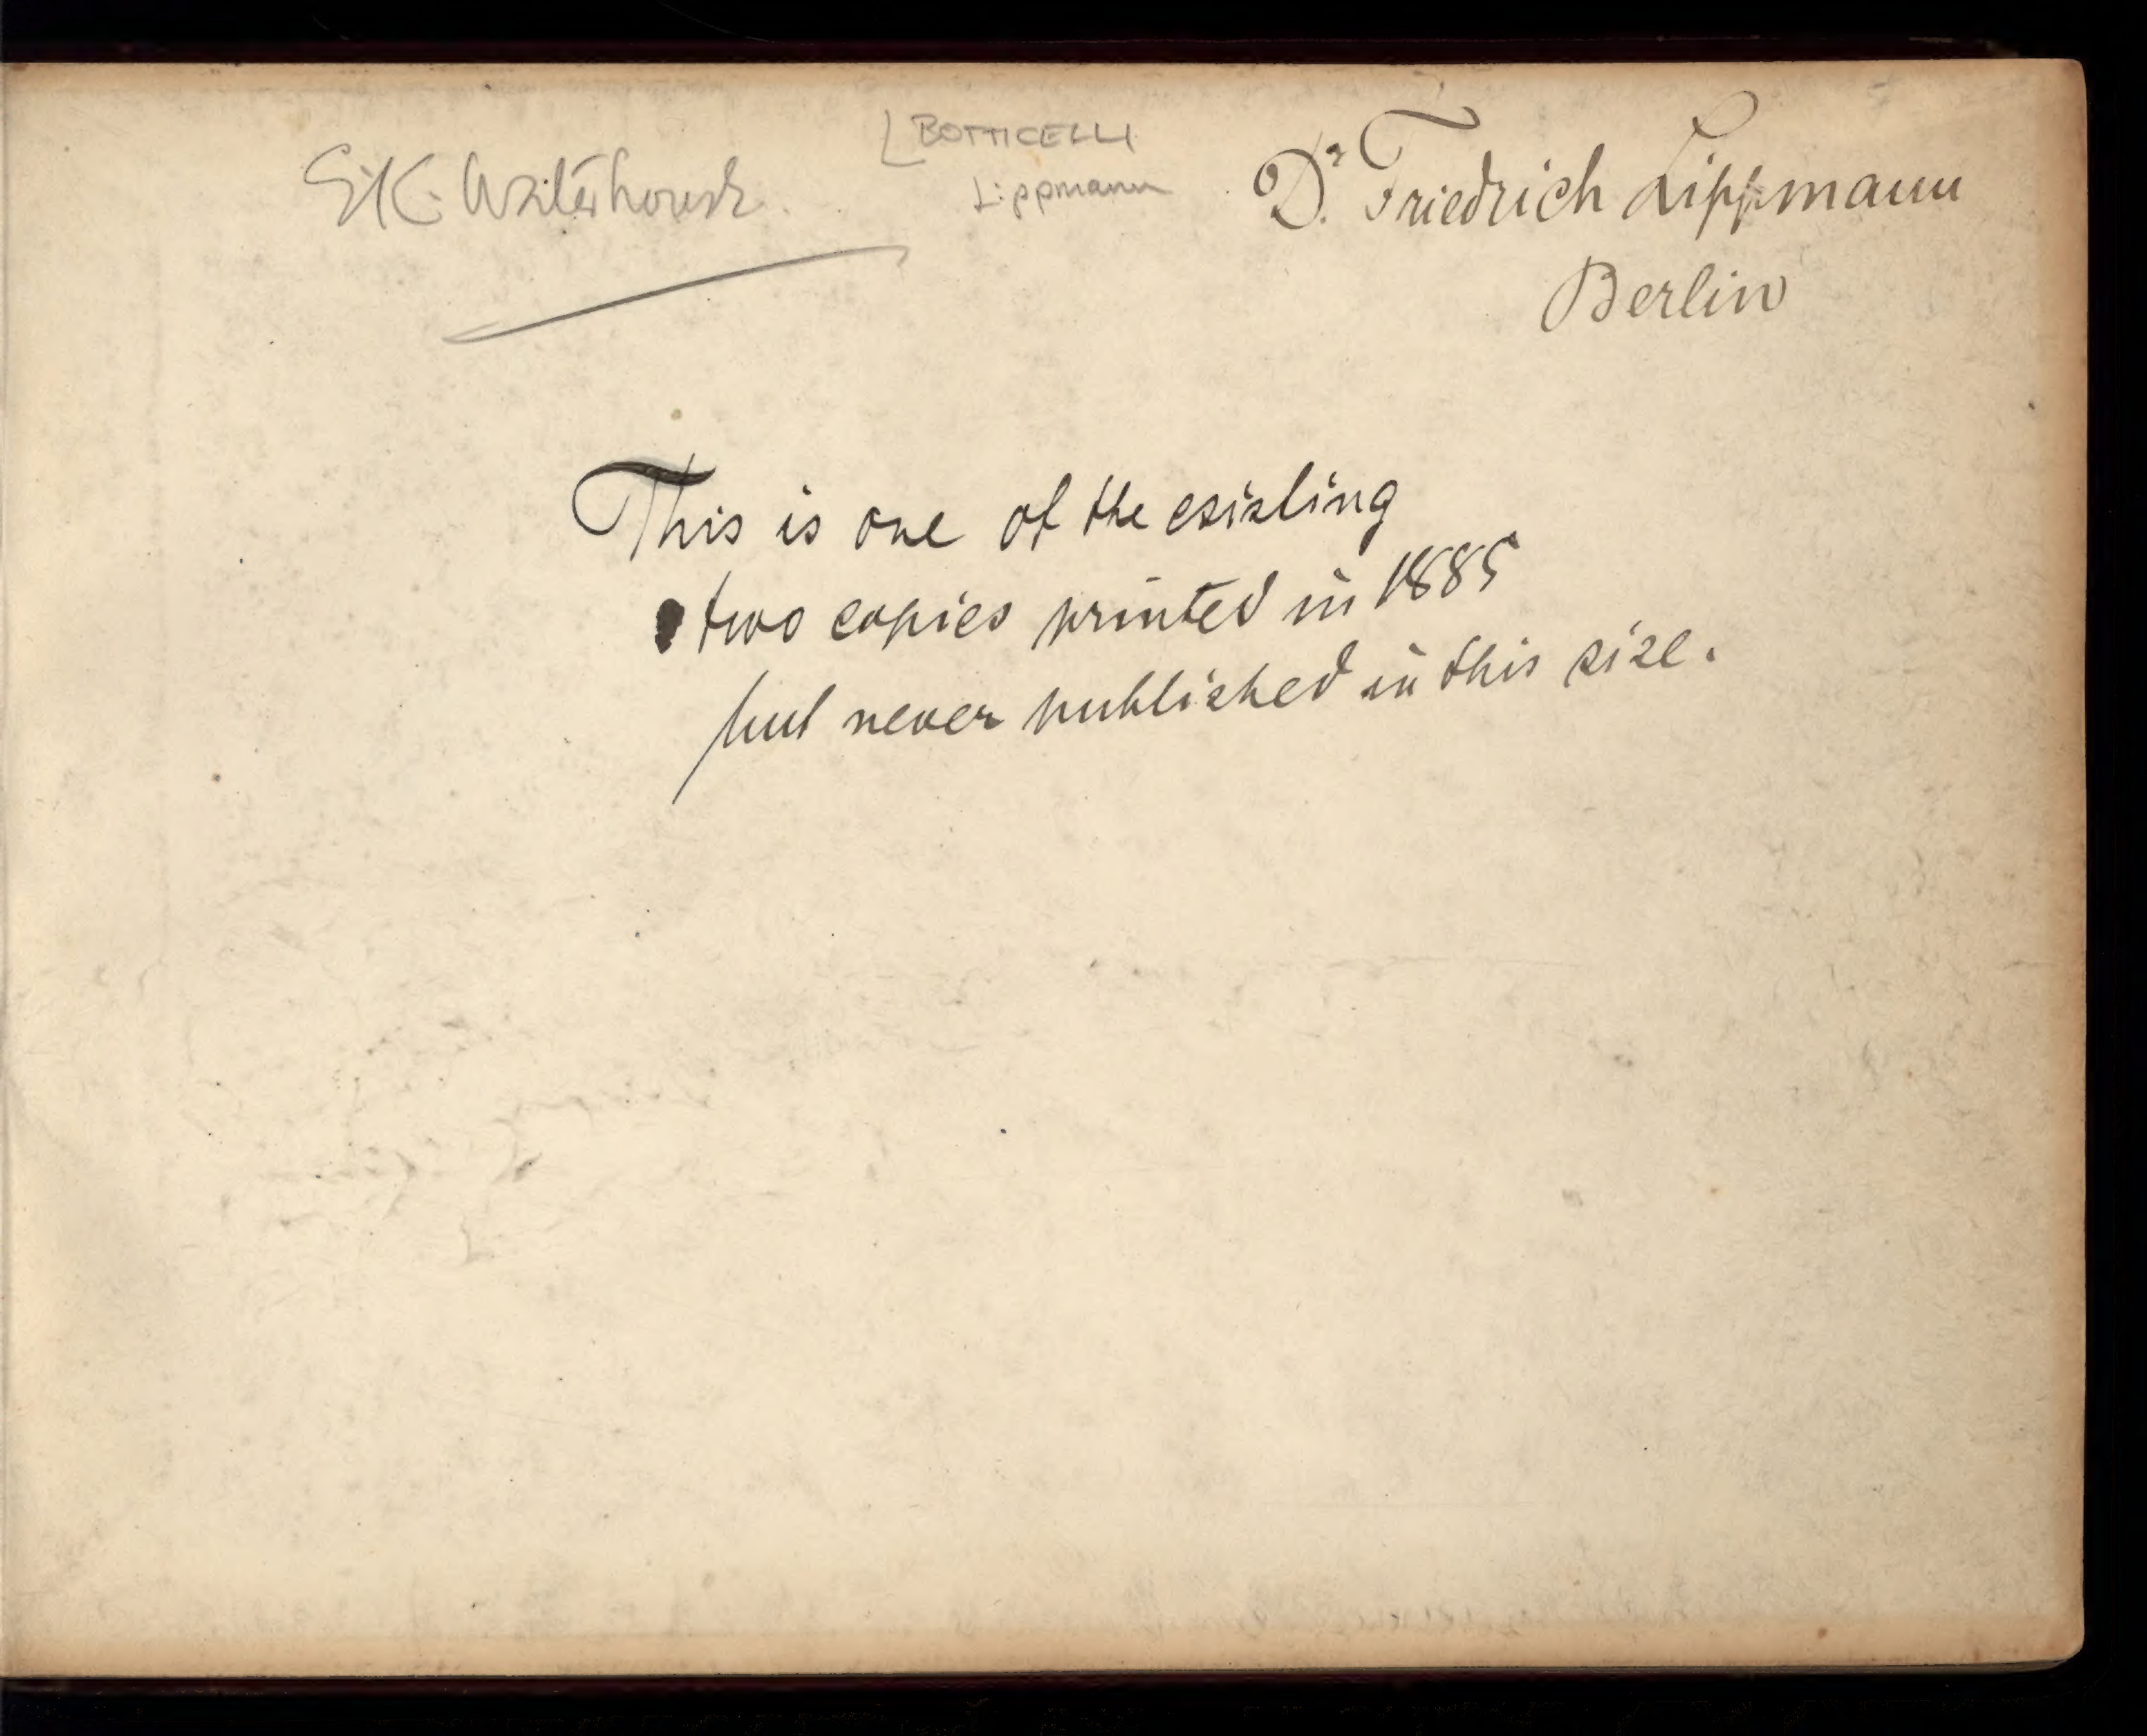 E.K. Waterhouse.
BOTTICELLI
Lippmann
Dr. Friedrich Lippmann
Berlin
This is one of the esisting
two copies printed in 1885
but never published in this size.